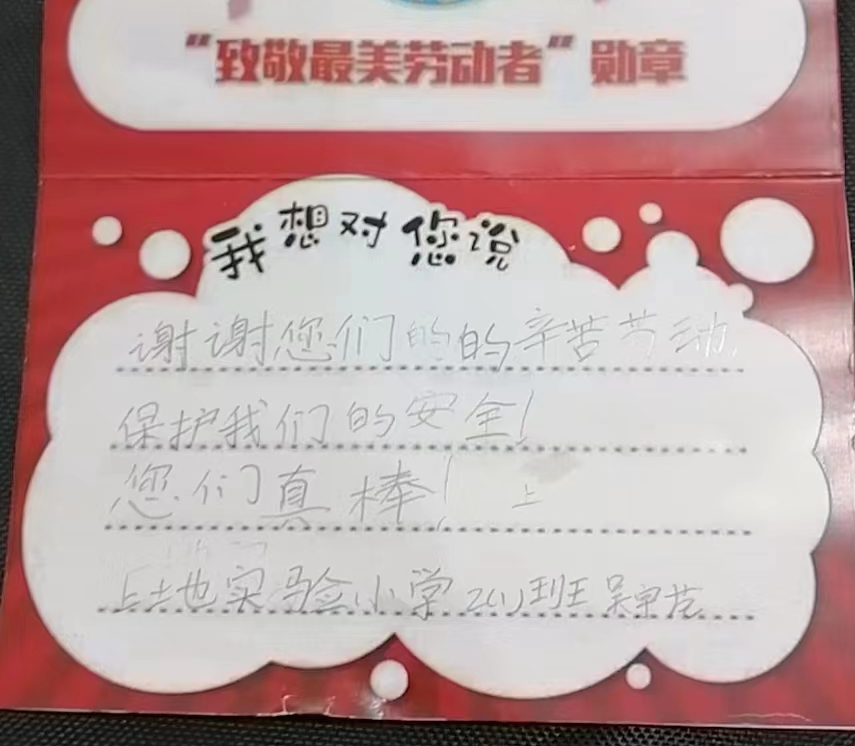 “致敬最美劳动者”勋章
我想对您说
谢谢您们的的辛苦劳动
保护我们的安全!
您们真棒! 上
上地实验小学2(1)班吴